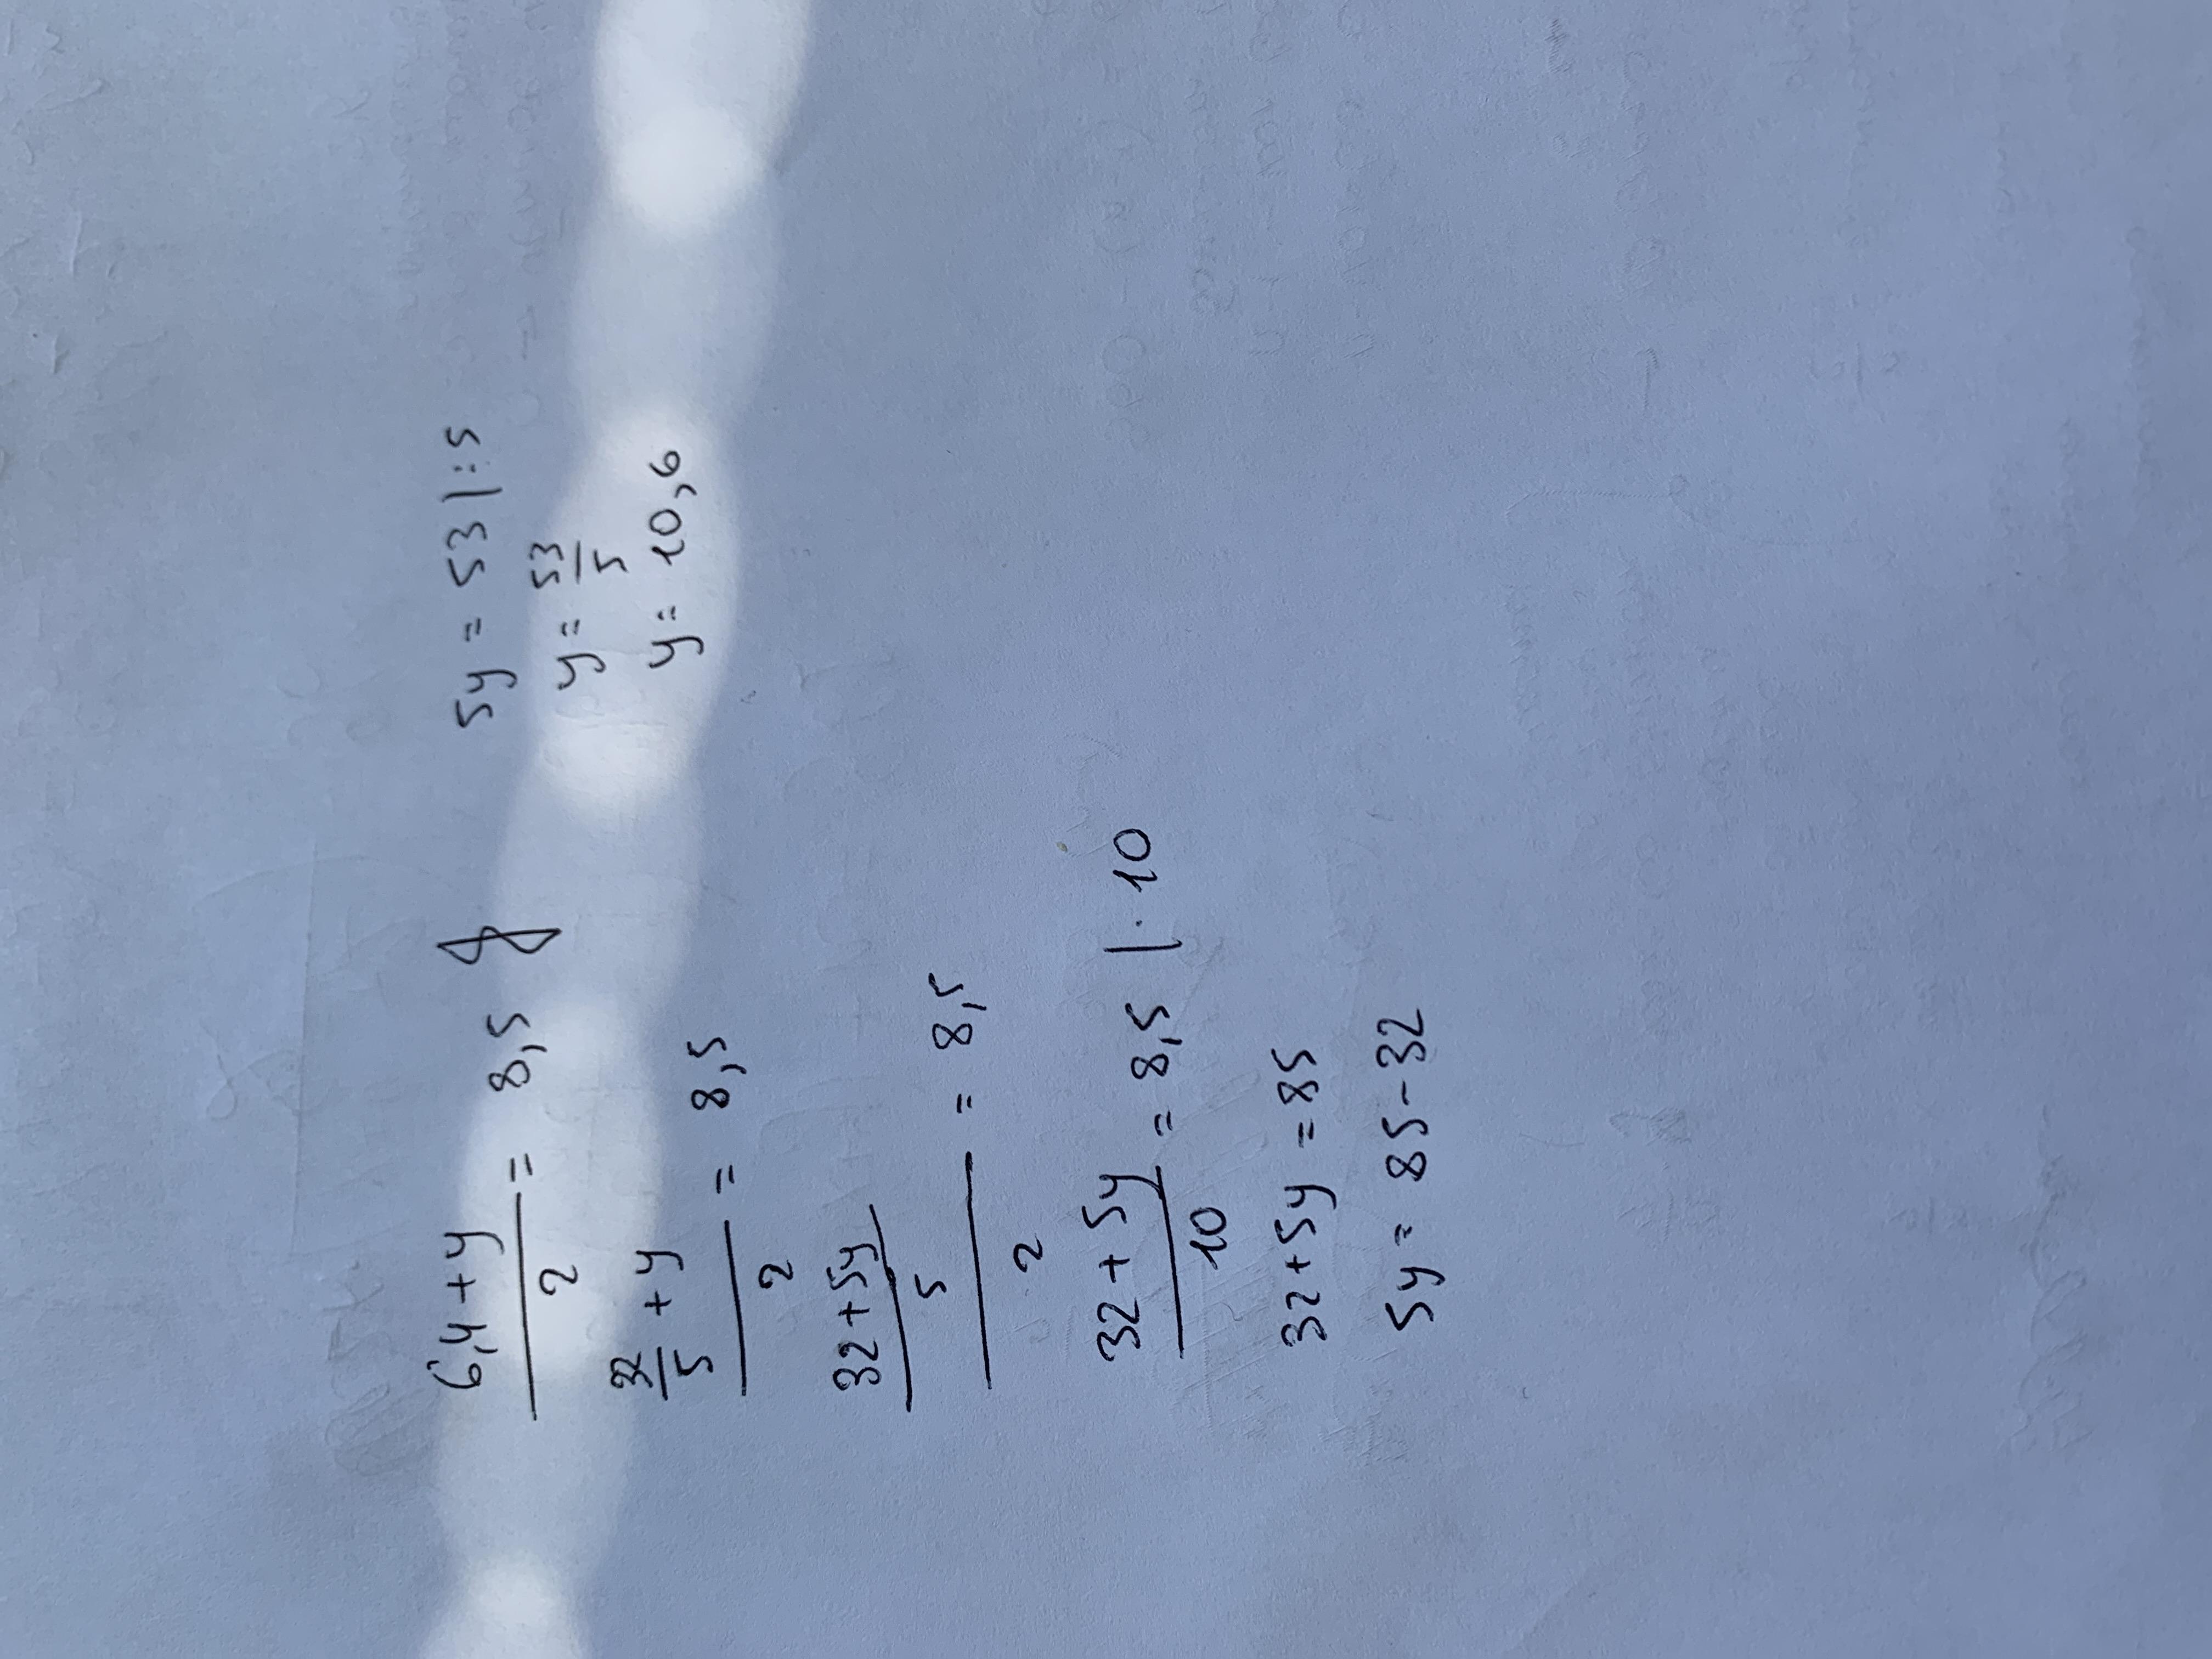 6,4+y/2 = 8,5
32/5 + y/2 = 8,5
32+5y/5/2 = 8,5
32+5y/10 = 8,5 |·10
32+5y = 85
5y = 85-32
5y = 53 |:5
y = 53/5
y = 10,6